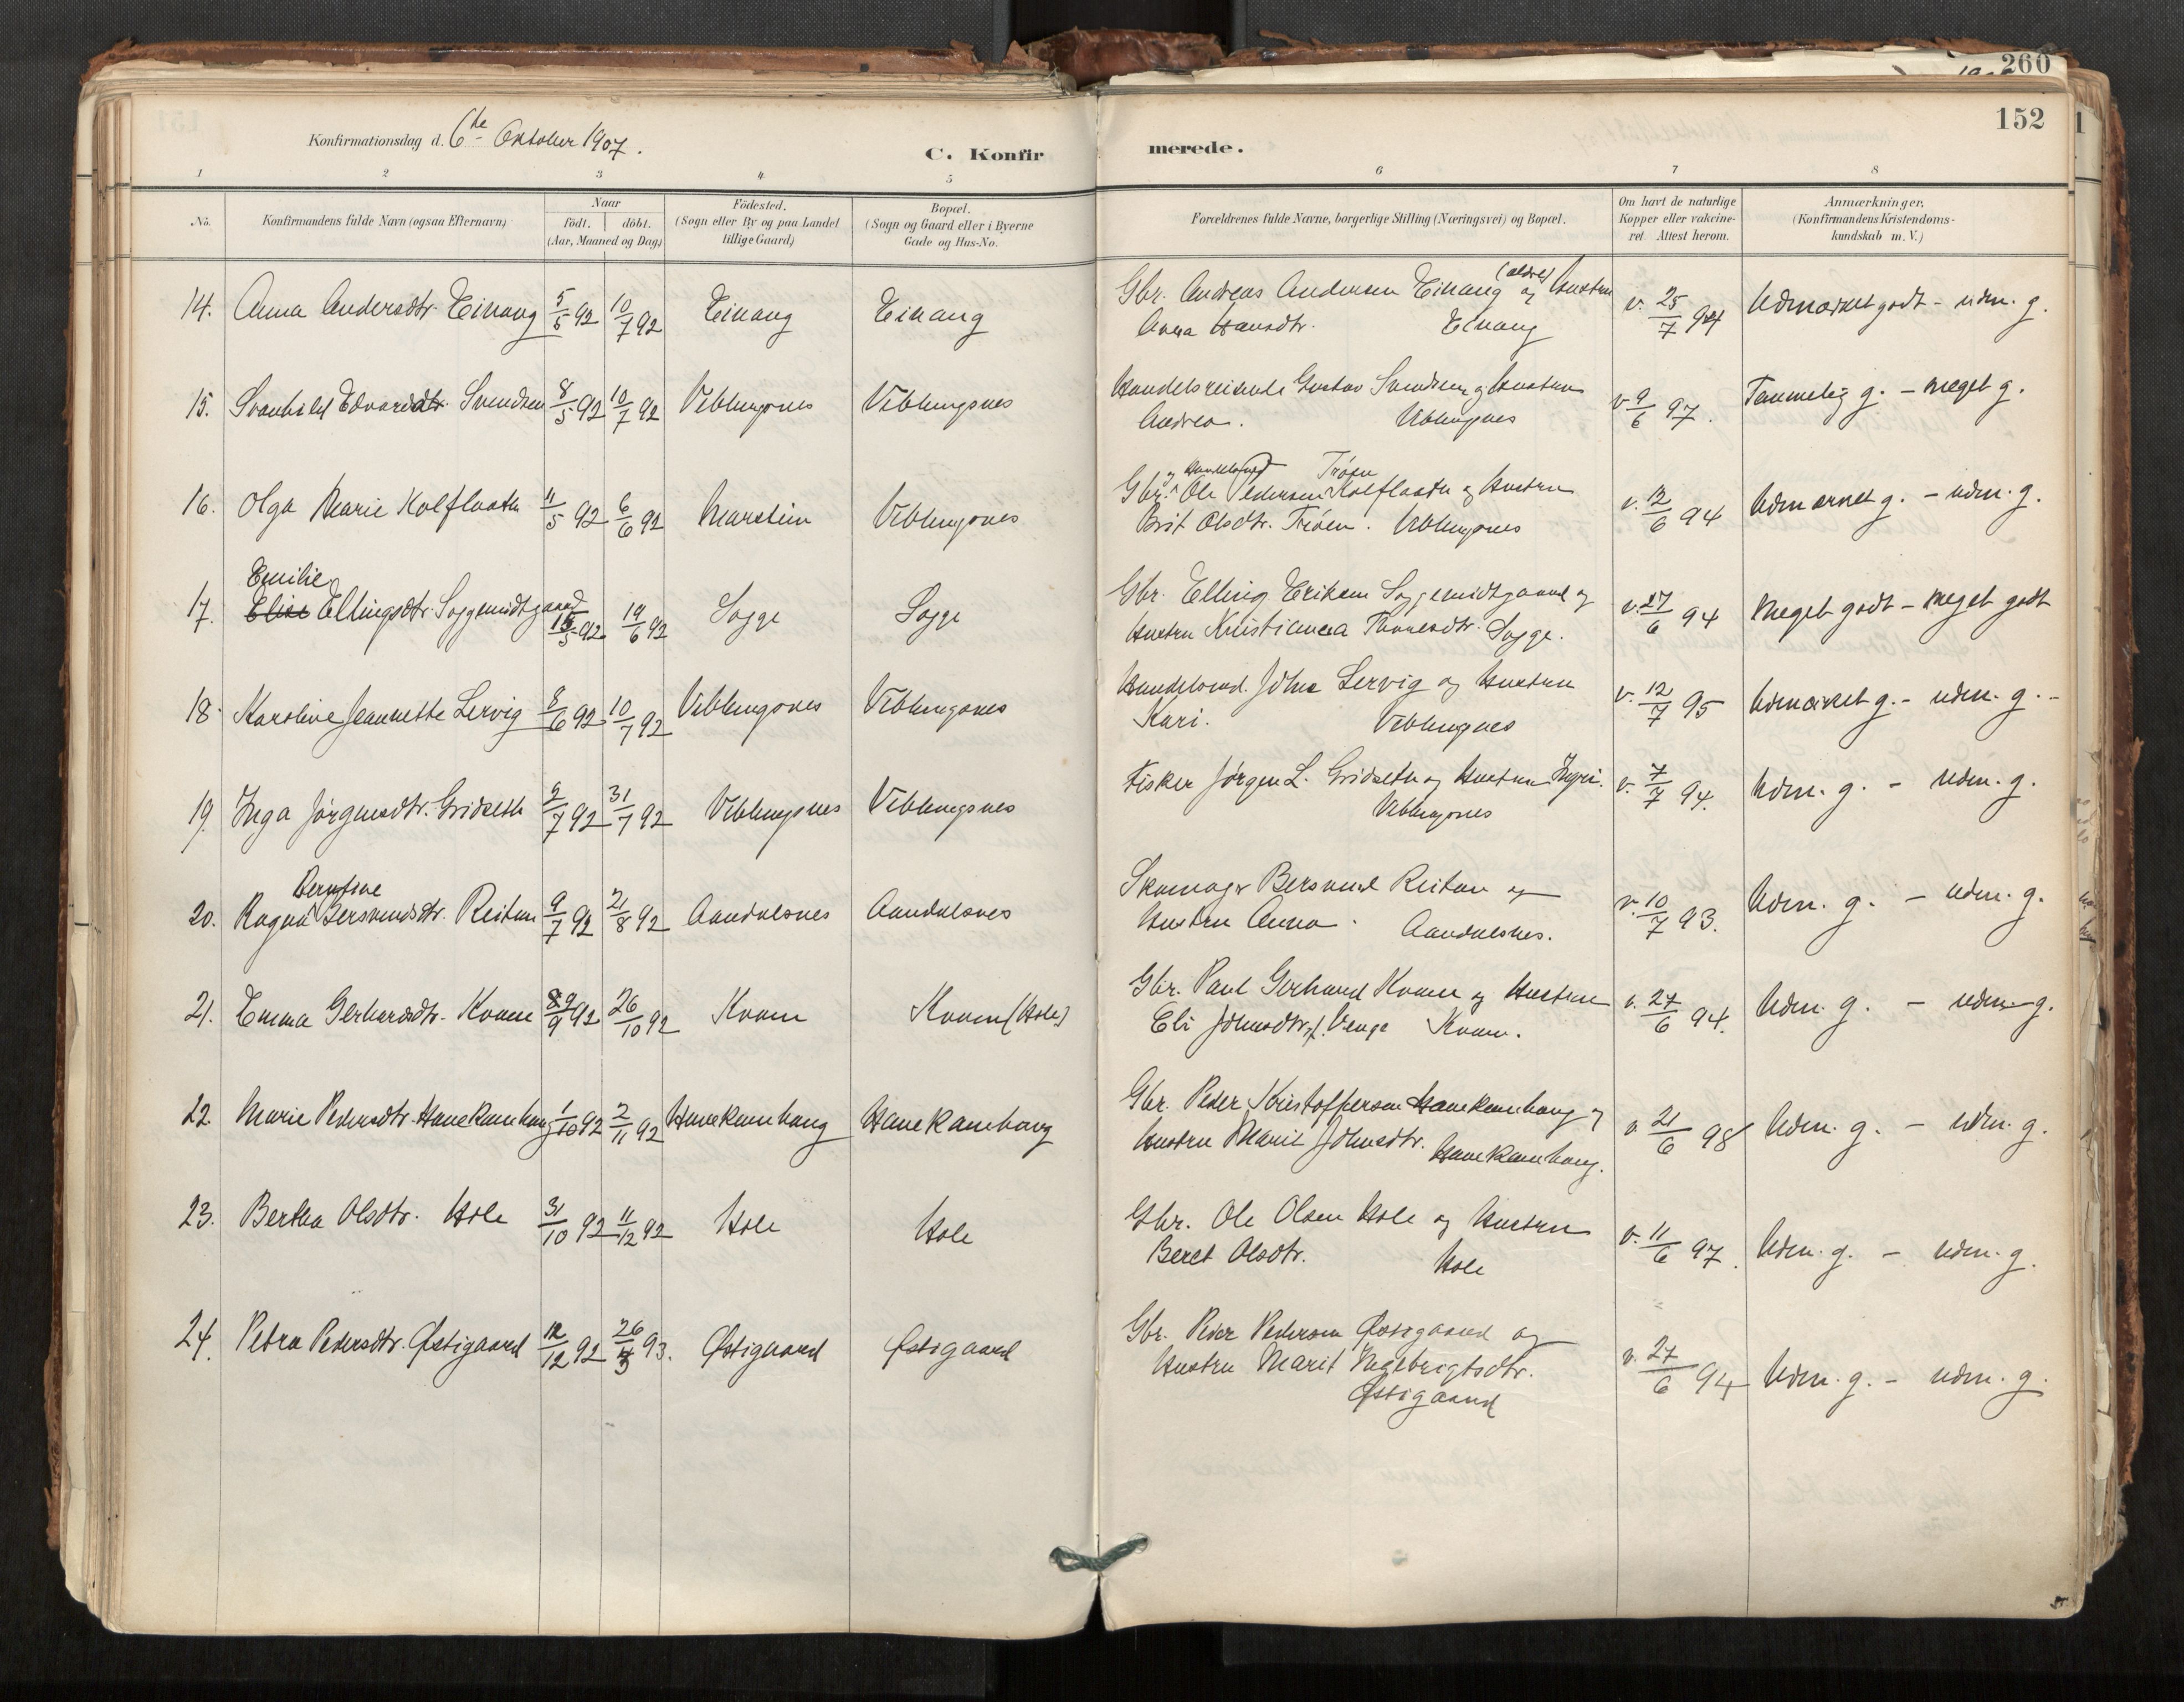 260
152
Konfirmationsdag d. 6te Oktober 1907.
C. Konfirmerede.
1 2 3 4 5 6 7 8
No. Konfirmandens fulde Navn (ogsaa Efternavn) Naar født. døbt. (Aar, Maaned og Dag) Födested. (Sogn eller By og paa Landet tillige Gaard) Bopæl. (Sogn og Gaard eller i Byerne Gade og Hus-No. Forældrenes fulde Navne, borgerlige Stilling (Næringsvei) og Bopæl. Om havt de naturlige Kopper eller vakcineret. Attest herom. Anmærkninger. (Konfirmandens Kristendomskundskab m. V.)
14. Anna Andersdtr. Einang 5/6 92 10/7 92 Einang Einang Gbr. Andreas Andersen Einang (aldre) og Hustru v. 25/7 94 Udmærket godt - udm. g.
Anna Hansdtr. Einang
15. Svanhild Edvardsdtr. Svendsen 8/5 92 10/7 92 Veblungsnes Veblungsnes Handelsreisende Gustav Svendsen og Hustru v. 9/6 97. Temmelig g. - meget g.
Andrea. Veblungsnes
16. Olga Marie Kolflaath 11/5 92 6/6 92 Marstein Veblungsnes Gbr. og Handelsmd Ole Pedersen Trøen Kolflaath og Hustru v. 12/6 94 Udmærket g. - udm. g.
Brit Olsdtr. Trøen. Veblungsnes
17. Emilie Elise Ellingsdtr. Soggemidtgaard 15/5 92 19/6 92 Sogge Sogge Gbr. Elling Eriksen Soggemidtgaard og v. 27/6 94 Meget godt - meget godt
Hustru Kristianna Thoresdtr. Sogge.
18. Karoline Jeannette Lervig 8/6 92 10/7 92 Veblungsnes Veblungsnes Handelsmd. Johs Lervig og Hustru v. 12/7 95 Udmærket g. - udm. g. -
Kari. Veblungsnes
19. Inga Jørgensdtr. Gridseth 2/7 92 31/7 92 Veblungsnes Veblungsnes Fisker Jørgen L. Gridseth og Hustru Ingri. v. 7/7 94. Udm. g. - Udm. g.
Veblungsnes
20. Ragna Berntine Bersvendsdtr. Reitan 9/7 92 21/8 92 Aandalsnes Aandalsnes Skomager Bersvend Reitan og v. 10/7 93. Udm. g. - udm. g.
Hustru Anna. Aandalsnes.
21. Emma Gerhardsdtr. Kvam 9/9 92 26/10 92 Kvam Kvam (Hole) Gbr. Paul Gerhard Kvam og Hustru v. 27/6 94. Udm. g. - udm. g.
Eli Johnsdtr. f. Venge Kvam.
22. Marie Pedersdtr. Hanekamhaug 1/10 92 2/11 92 Hanekamhaug Hanekamhaug Gbr. Peder Kristoffersen Hanekamhaug og v. 21/6 98 Udm. g. - udm. g.
Hustru Marit Johnsdtr. Hanekamhaug.
23. Bertha Olsdtr. Hole 31/10 92 11/12 92 Hole Hole Gbr. Ole Olsen Hole og Hustru v. 11/6 97. Udm. g. - udm. g.
Beret Olsdtr. Hole
24. Petra Pedersdtr. Østigaard 12/12 92 26/3 93. Østigaard Østigaard Gbr. Peder Pedersen Østigaard og v. 27/6 94 Udm. g. - udm. g.
Hustru Marit Ingebrigtsdtr.
Østigaard